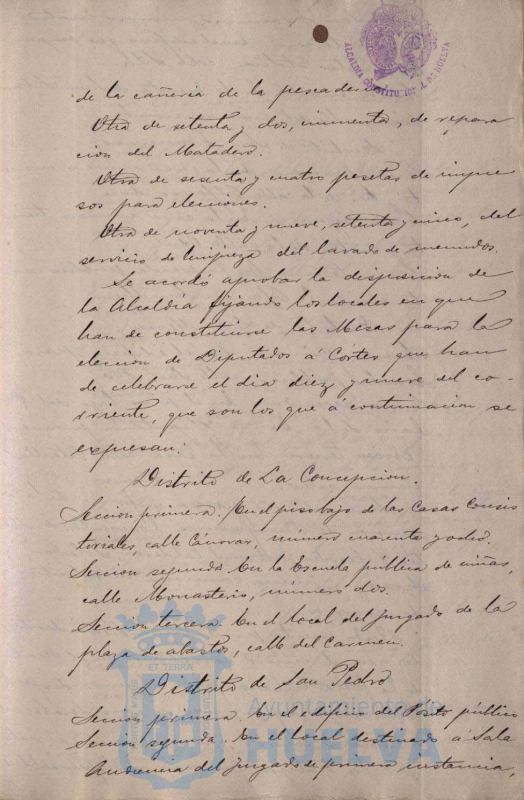 ALCALDIA CONSTITUCIONAL DE HUELVA
de la cañeria de la pescaderia.
Otra de setenta y dos, cincuenta, de repara
cion del Matadero.
Otra de sesenta y cuatro pesetas de impre
sos para elecciones.
Otra de noventa y nueve, setenta y cinco, del
servicio de limpieza del lavado de menudos.
Se acordó aprobar la disposicion de
la Alcaldía fijando los locales en que
han de constituirse las Mesas para la
eleccion de Diputados á Córtes que han
de celebrarse el dia diez y nueve del co-
rriente, que son los que á continuacion se
expresan:
Distrito de La Concepcion.
Seccion primera. En el piso bajo de las Casas Consis
toriales, calle Cánovas, número cuarenta y ocho.
Seccion segunda. En la Escuela pública de niñas,
calle Monasterio, número dos.
Seccion tercera. En el local del Juzgado de la
plaza de abastos, calle del Carmen.
Distrito de San Pedro
Seccion primera. En el edificio del Pósito público
Seccion segunda. En el local destinado á Sala
Audiencia del Juzgado de primera instancia,
ET TERRÆ
Ayuntamiento de
HUELVA